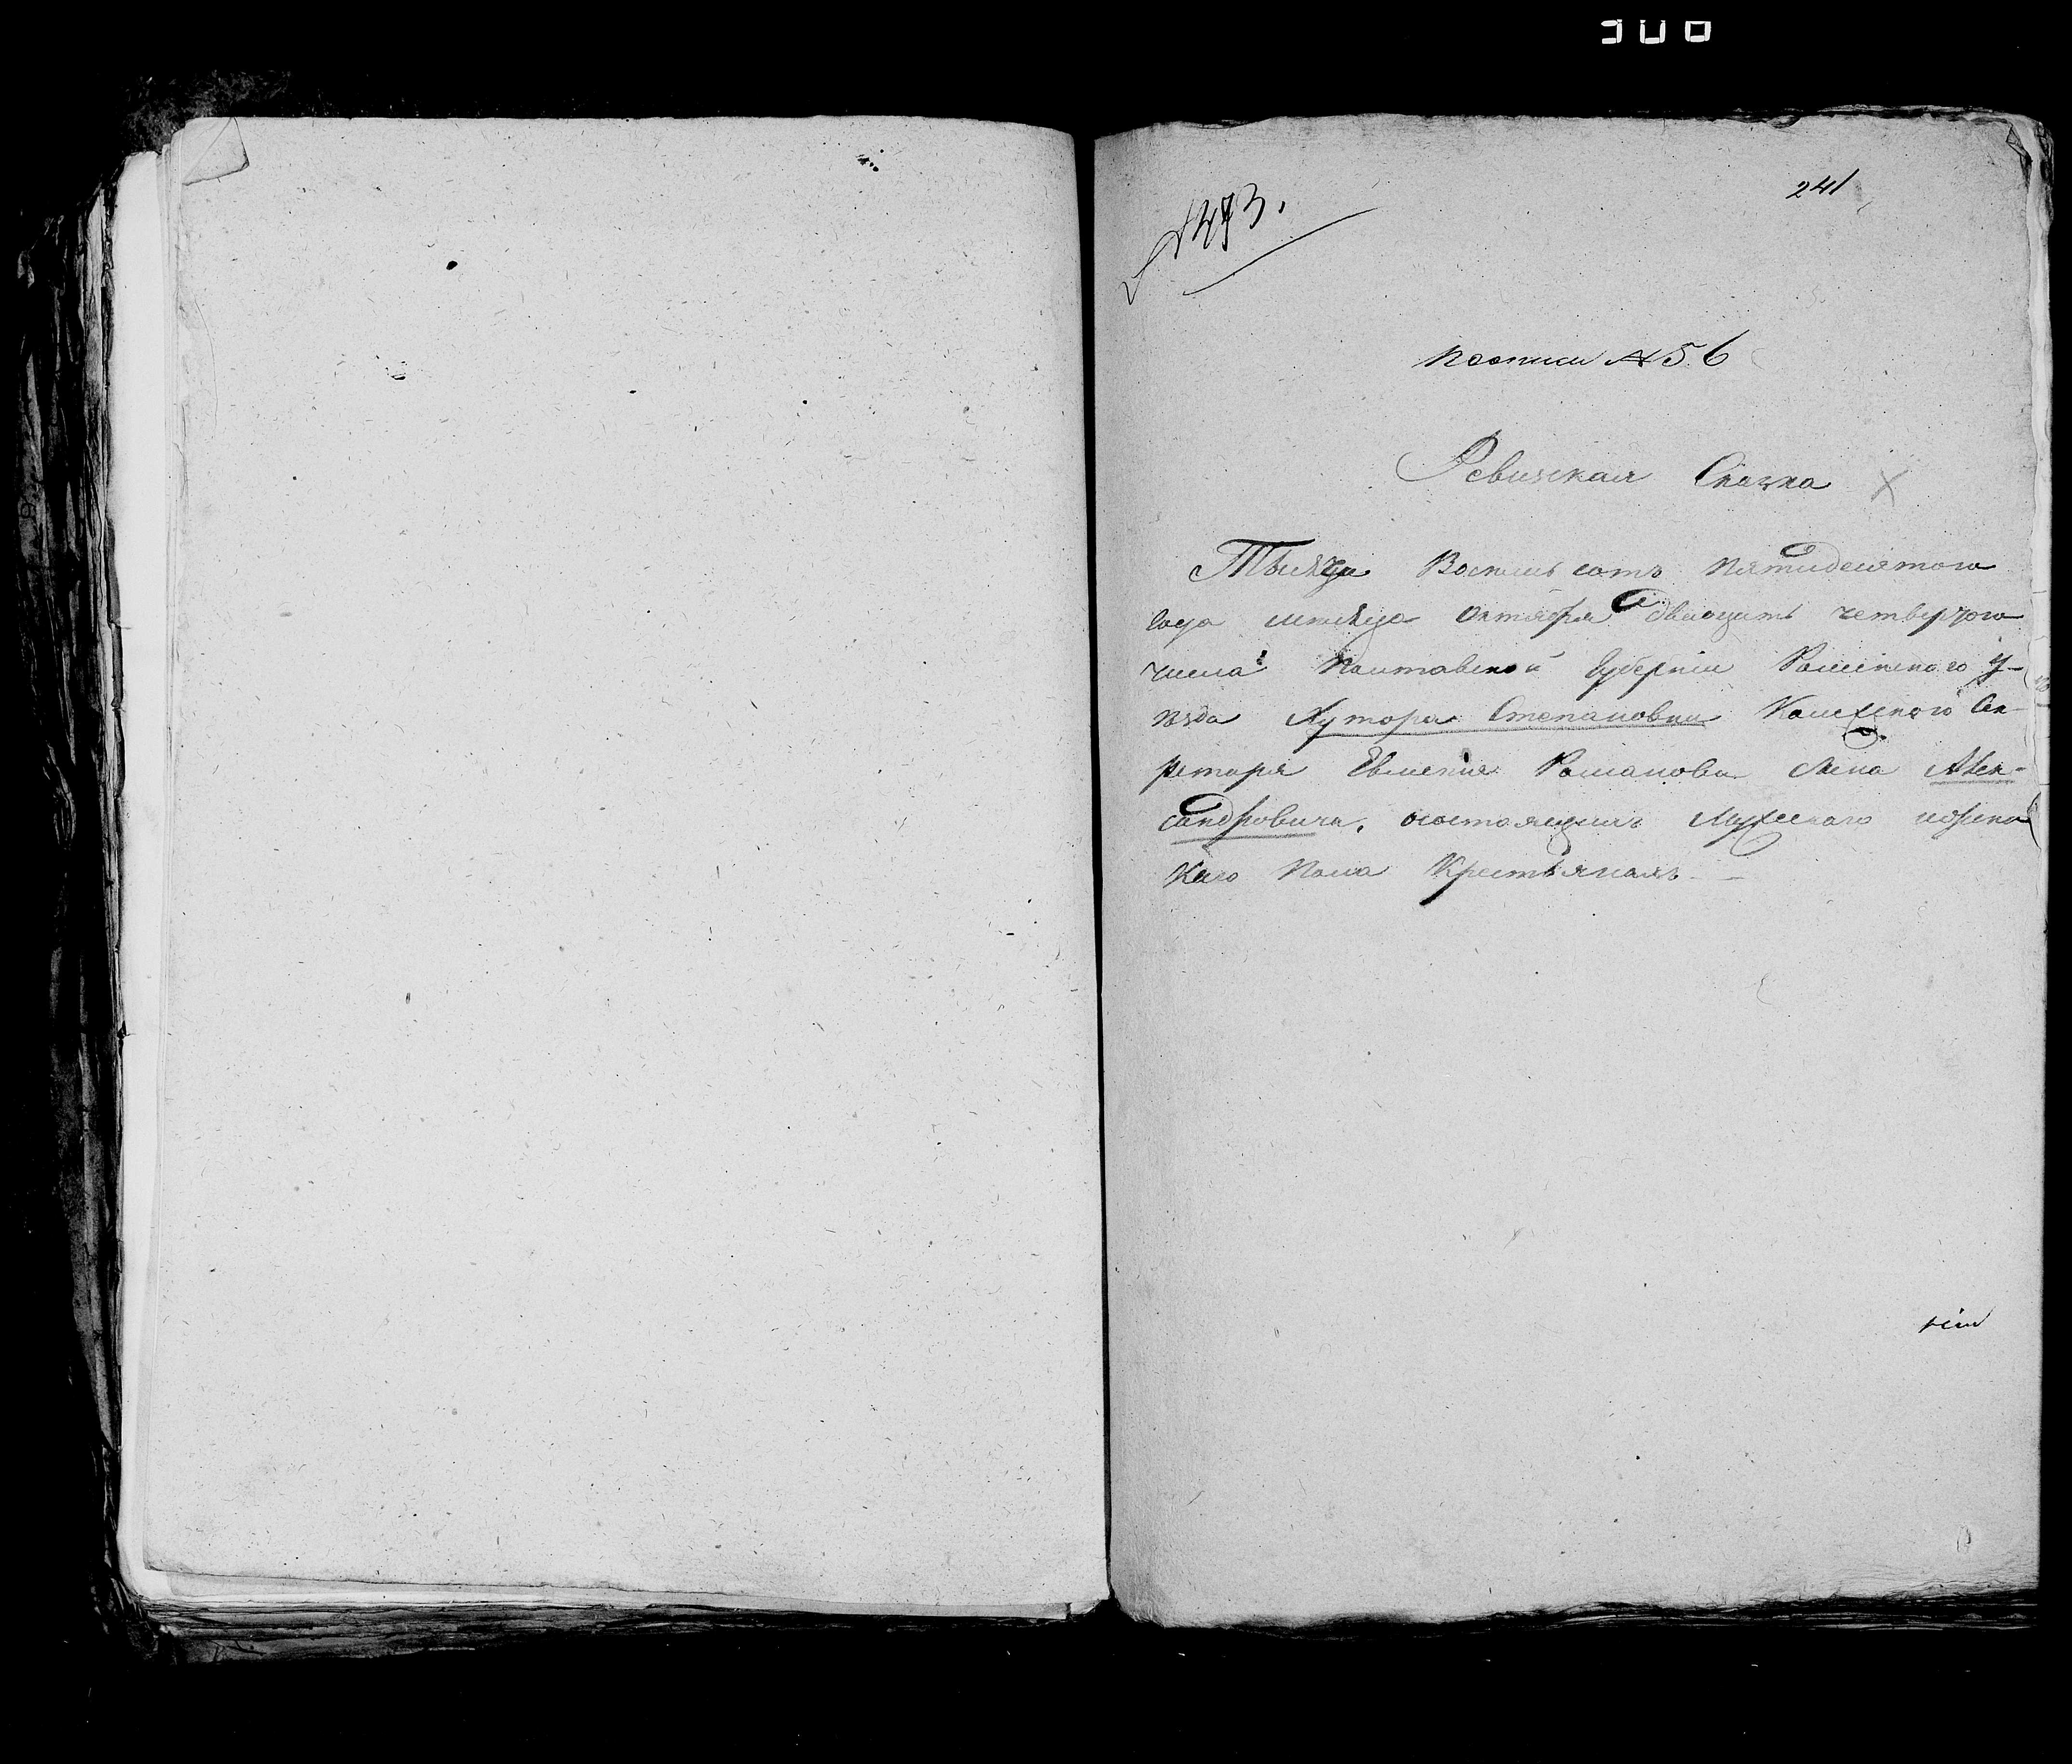 241
По описи № 56
Ревизская Сказка
Тысяча Восемь сотъ пятидесятого
года месяца Октября двадцать четвертого
числа Полтавской Губерніи Роменского у-
ѣзда Хутора Степановки Колежского Сек-
ретаря Евгенія Романова сына Алек-
сандровича, о состоящихъ Мужеского и женс
каго Пола Крестьянахъ